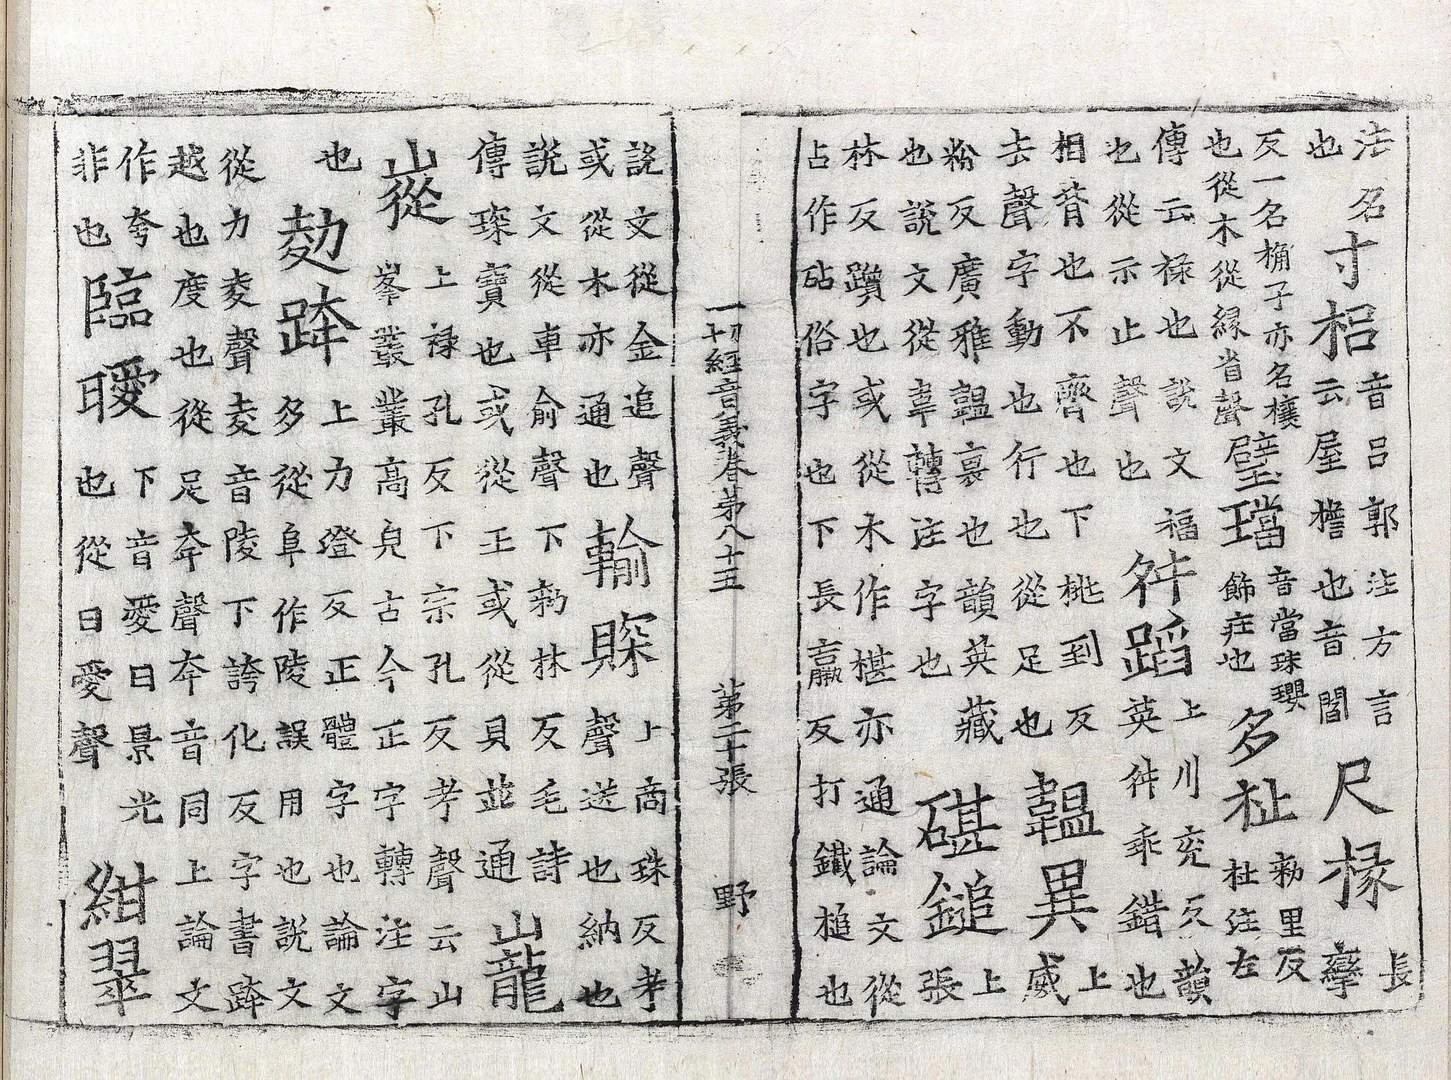 法名
也
寸梠
音吕郭注方言
云屋檐也音閻
尺椽
長
攣
反一名桷子亦名榱
也從木從緣省聲
璧璫
音當珠瓔
飾莊也
多祉
勑里反
杜注左
傳云禄也說文福
也從示止聲也
舛蹈
上川兖反韻
英舛乖錯也
相背也不齊也下桃到反
去聲字動也行也從足也
韞異
上
威
粉反廣雅韞裹也韻英藏
也說文從韋轉注字也
碪鎚
上
張
林反躓也或從木作椹亦通論文從
占作砧俗字也下長羸反打鐵槌也
一切經音義卷第八十五 第二十張 野
說文從金追聲
或從木亦通也
輸賝
上商珠反考
聲送也納也
說文從車俞聲下勑林反毛詩
傳琛寶也或從王或從貝並通
巃
嵷
上禄孔反下宗孔反考聲云山
峯叢叢高皃古今正字轉注字
也
跨
上力澄反正體字也論文
多從阜作陵誤用也說文
從力夌聲夌音陵下誇化反字書跨
越也度也從足夸聲夸音同上論文
作夸
非也
臨曖
下音愛日景光
也從日愛聲
紺翠